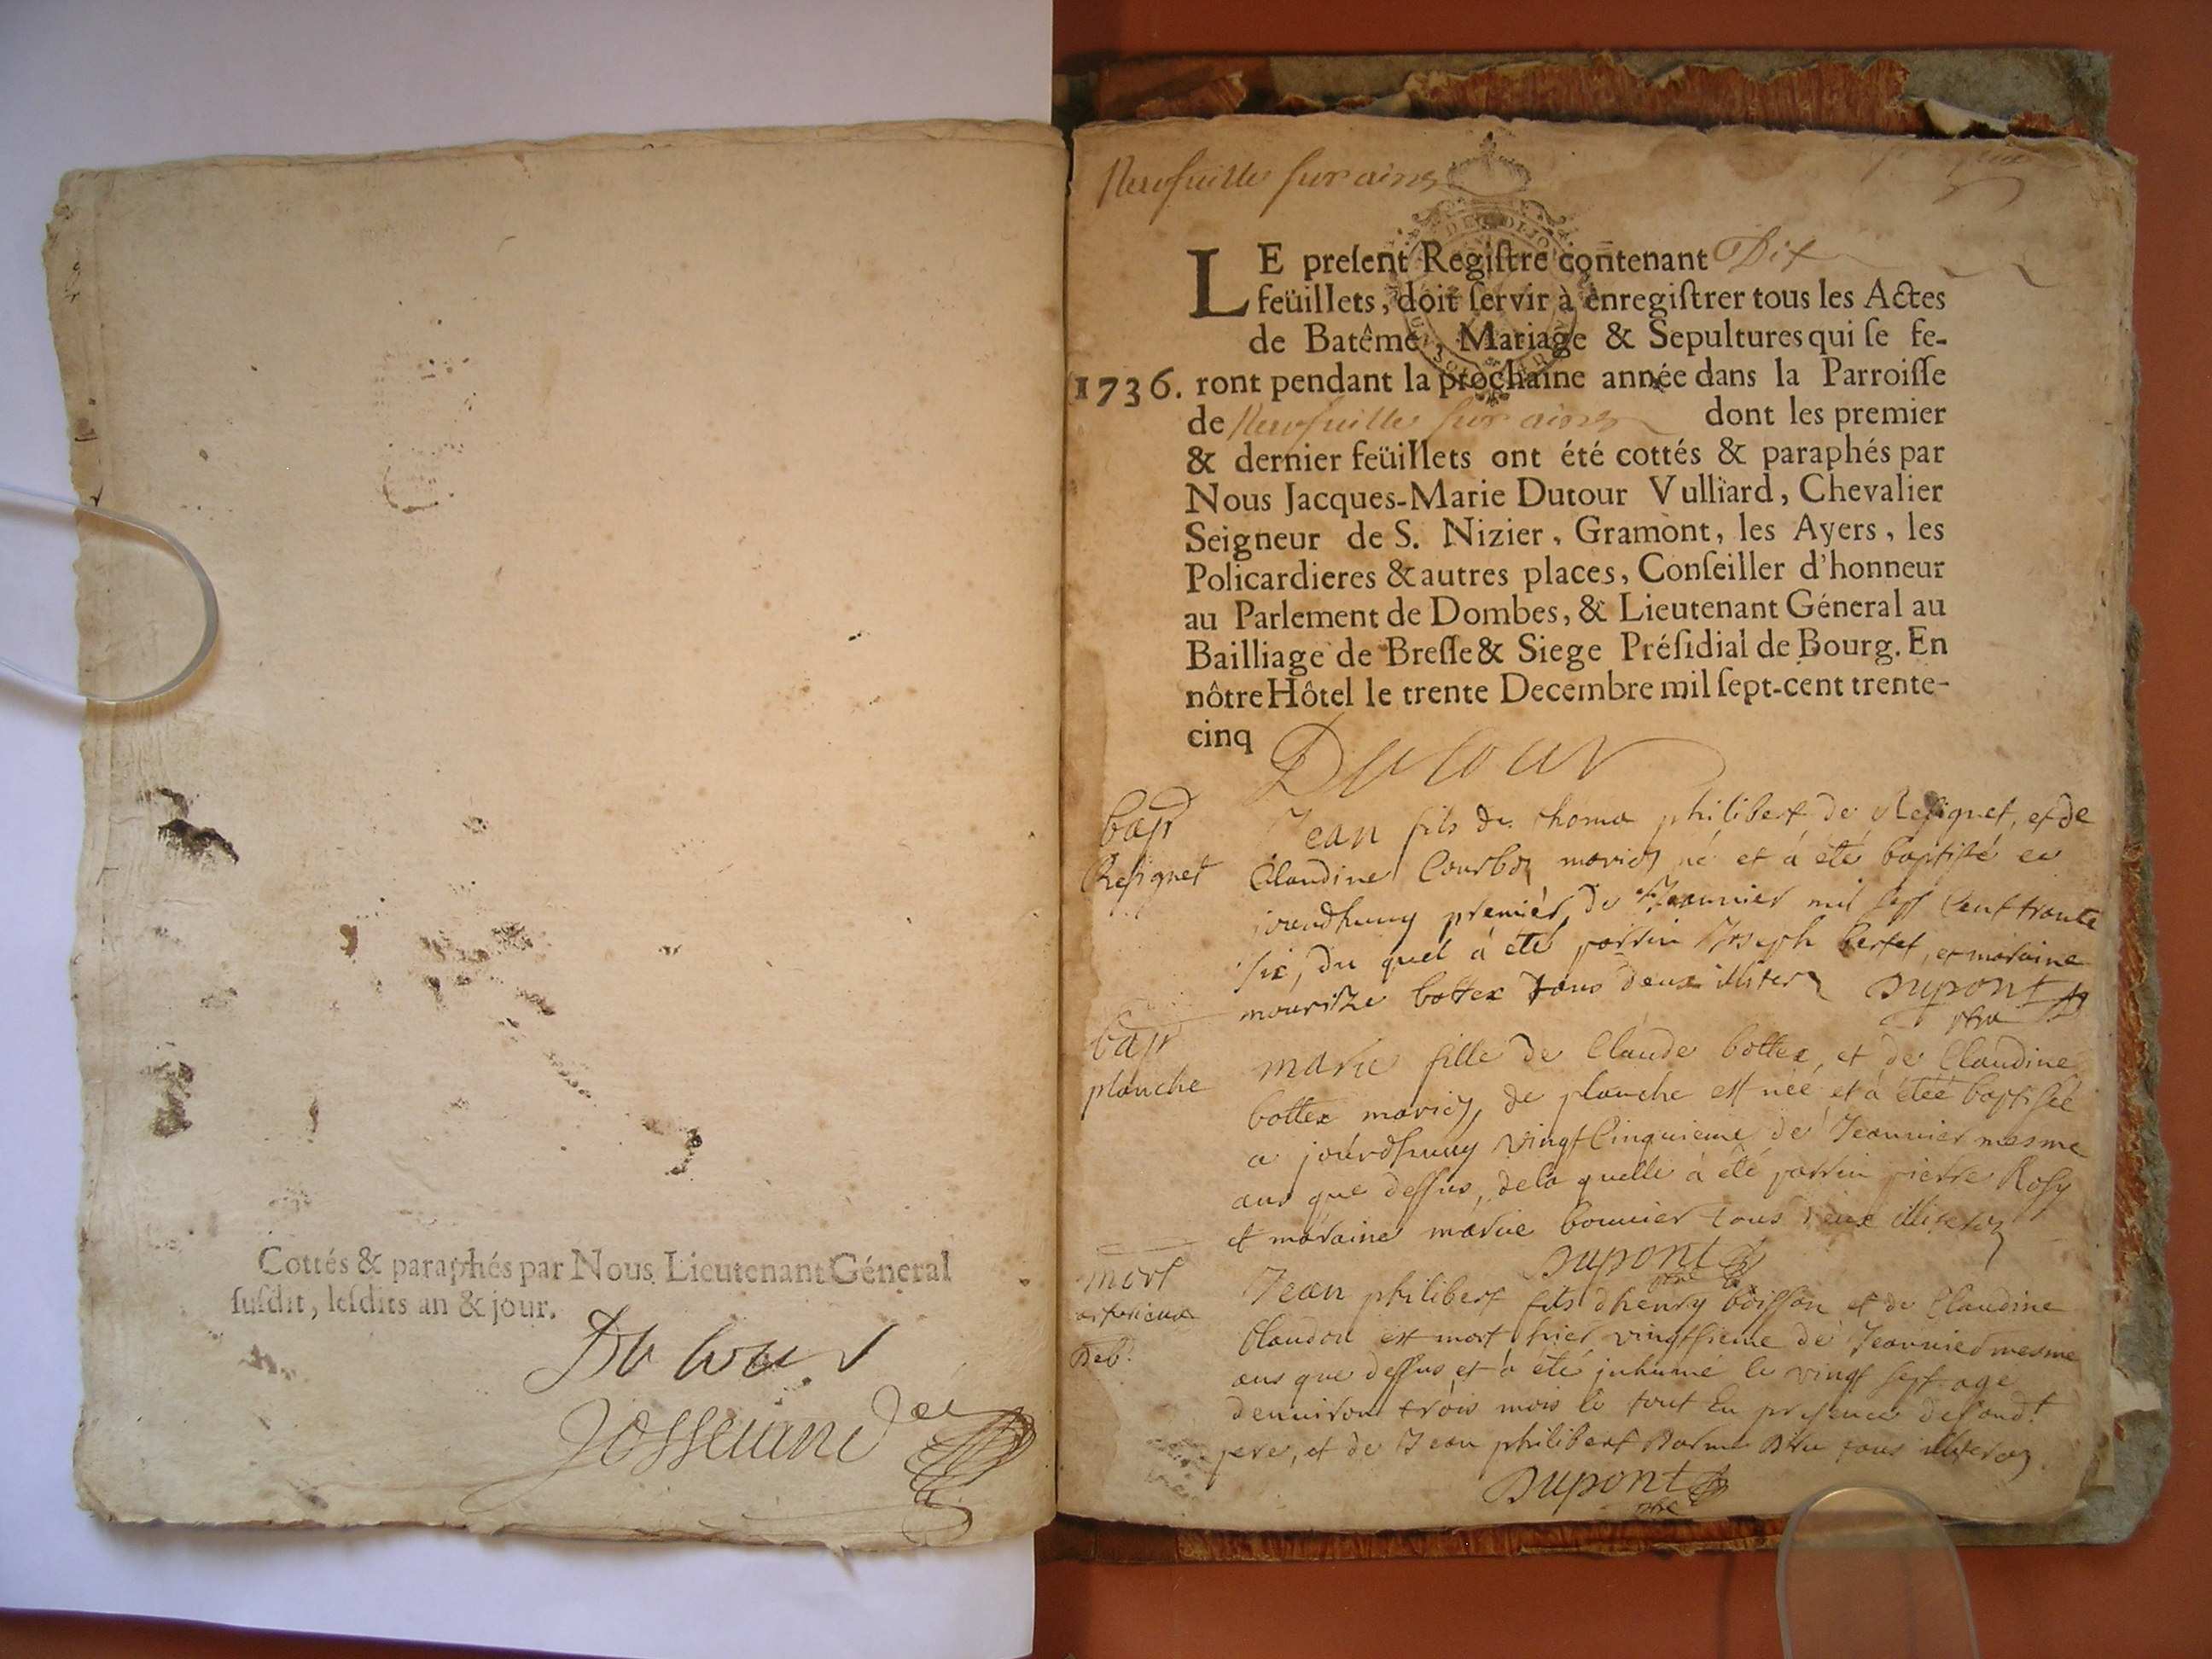 Cottés & paraphés par Nous Lieutenant Géneral
susdit, lesdits an & jour.
Dutour
Josserand
Neufuille sur ains
LE present Registre contenant Dix
feüillets, doit servir à enregistrer tous les Actes
de Batême, Mariage & Sepultures qui se fe-
1736. ront pendant la prochaine année dans la Parroisse
de Neufuille sur ains dont les premier
& dernier feüillets ont été cottés & paraphés par
Nous Jacques-Marie Dutour Vulliard, Chevalier
Seigneur de S. Nizier, Gramont, les Ayers, les
Policardieres & autres places, Conseiller d'honneur
au Parlement de Dombes, & Lieutenant Géneral au
Bailliage de Bresse & Siege Présidial de Bourg. En
nôtre Hôtel le trente Decembre mil sept-cent trente-
cinq
Dutour
bap
Resignet
Jean fils de thoma philibert de Resignet, et de
Claudine Courbo mariez né et à été baptisé ce
jourdhuuy premier de Jeanuier mil sept Cent trante
six, du quel à été parrin Joseph bertet, et maraine
bottex tous deux Dupont
ptre
bap
planche
marie fille de Claude bottex, et de Claudine
bottex mariez, de planche est née et à étée baptisée
a jourdhuuy vingt Cinquieme de Jeanuier mesme
ans que dessus, dela quelle à été parrin pierre Rosy
et maraine marie bouuier tous deux illiterez
Dupont
ptre
mort
Jean philibert fils dhenry boisson et de Claudine
Claudon est mort hier vingtsieme de Jeanuier mesme
ans que dessus et à été inhumé le vingt sept age
denuiron trois mois le tout En presence de
pere, et de Jean philibert tous illiterez
Dupont
ptre